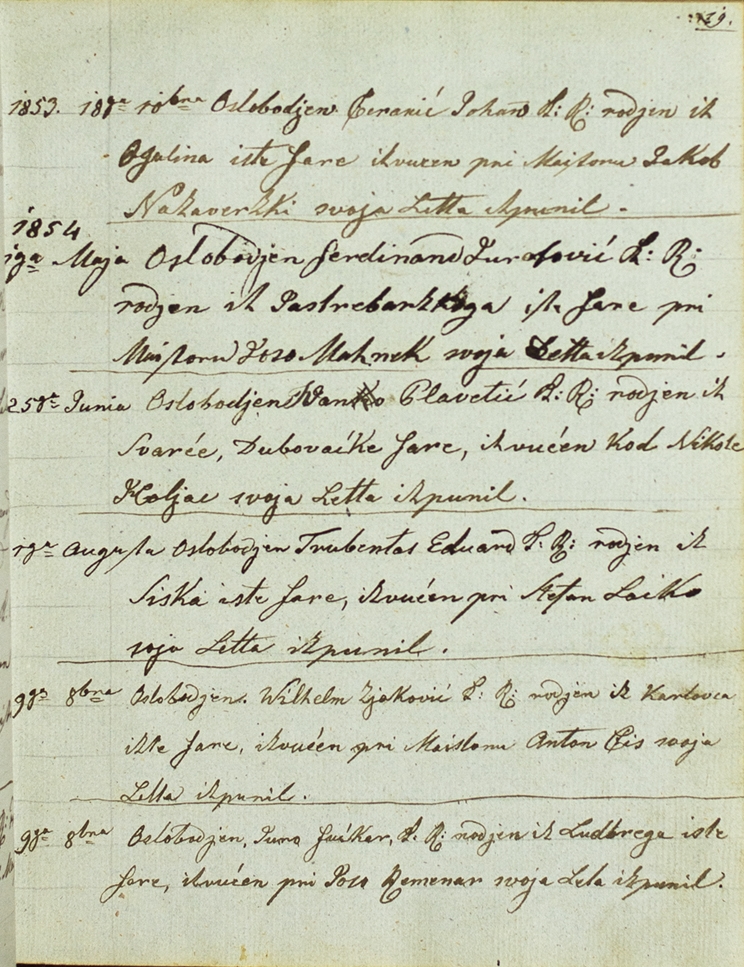 19.
1853. 18ga 10bra Oslobodjen Ceranić Johan L: R: rodjen iz
Ogulina iste fare izvucen pri Majstoru Jakob
svoja Letta izpunil.
1854
1ga Maja Oslobodjen Ferdinand L: R:
rodjen iz Jastrebarzkoga iste fare pri
Majstoru Joso Mahnek svoja Letta izpunil.
25ga Junia Oslobodjen Vanko Plavetić L: R: rodjen iz
Svarče, Dubovačke fare, izvučen kod Nikole
Holjac svoja Letta izpunil.
1ga Augusta Oslobodjen Trubentas Eduard L: R: rodjen iz
Siska iste fare, izvučen pri Stefan Laiko
svoja Letta izpunil.
9ga 8bra Oslobodjen. Wilhelm Zjaković L: R: rodjen iz Karlovca
izte fare, izvučen pri Maistoru Anton svoja
Letta izpunil.
9ga 8bra Oslobodjen, Juro L: R: rodjen iz Ludbrega iste
fare, izvučen pri Joso Remenar svoja Leta izpunil.